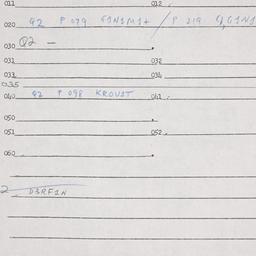 011 012
020 92 P 079 G1N1M1+ / P 219 G1N1
030 Q2 —
031 032
033 034
035
040 92 P 098 KROUST 041
050
051 052
060
2 D3RF1N